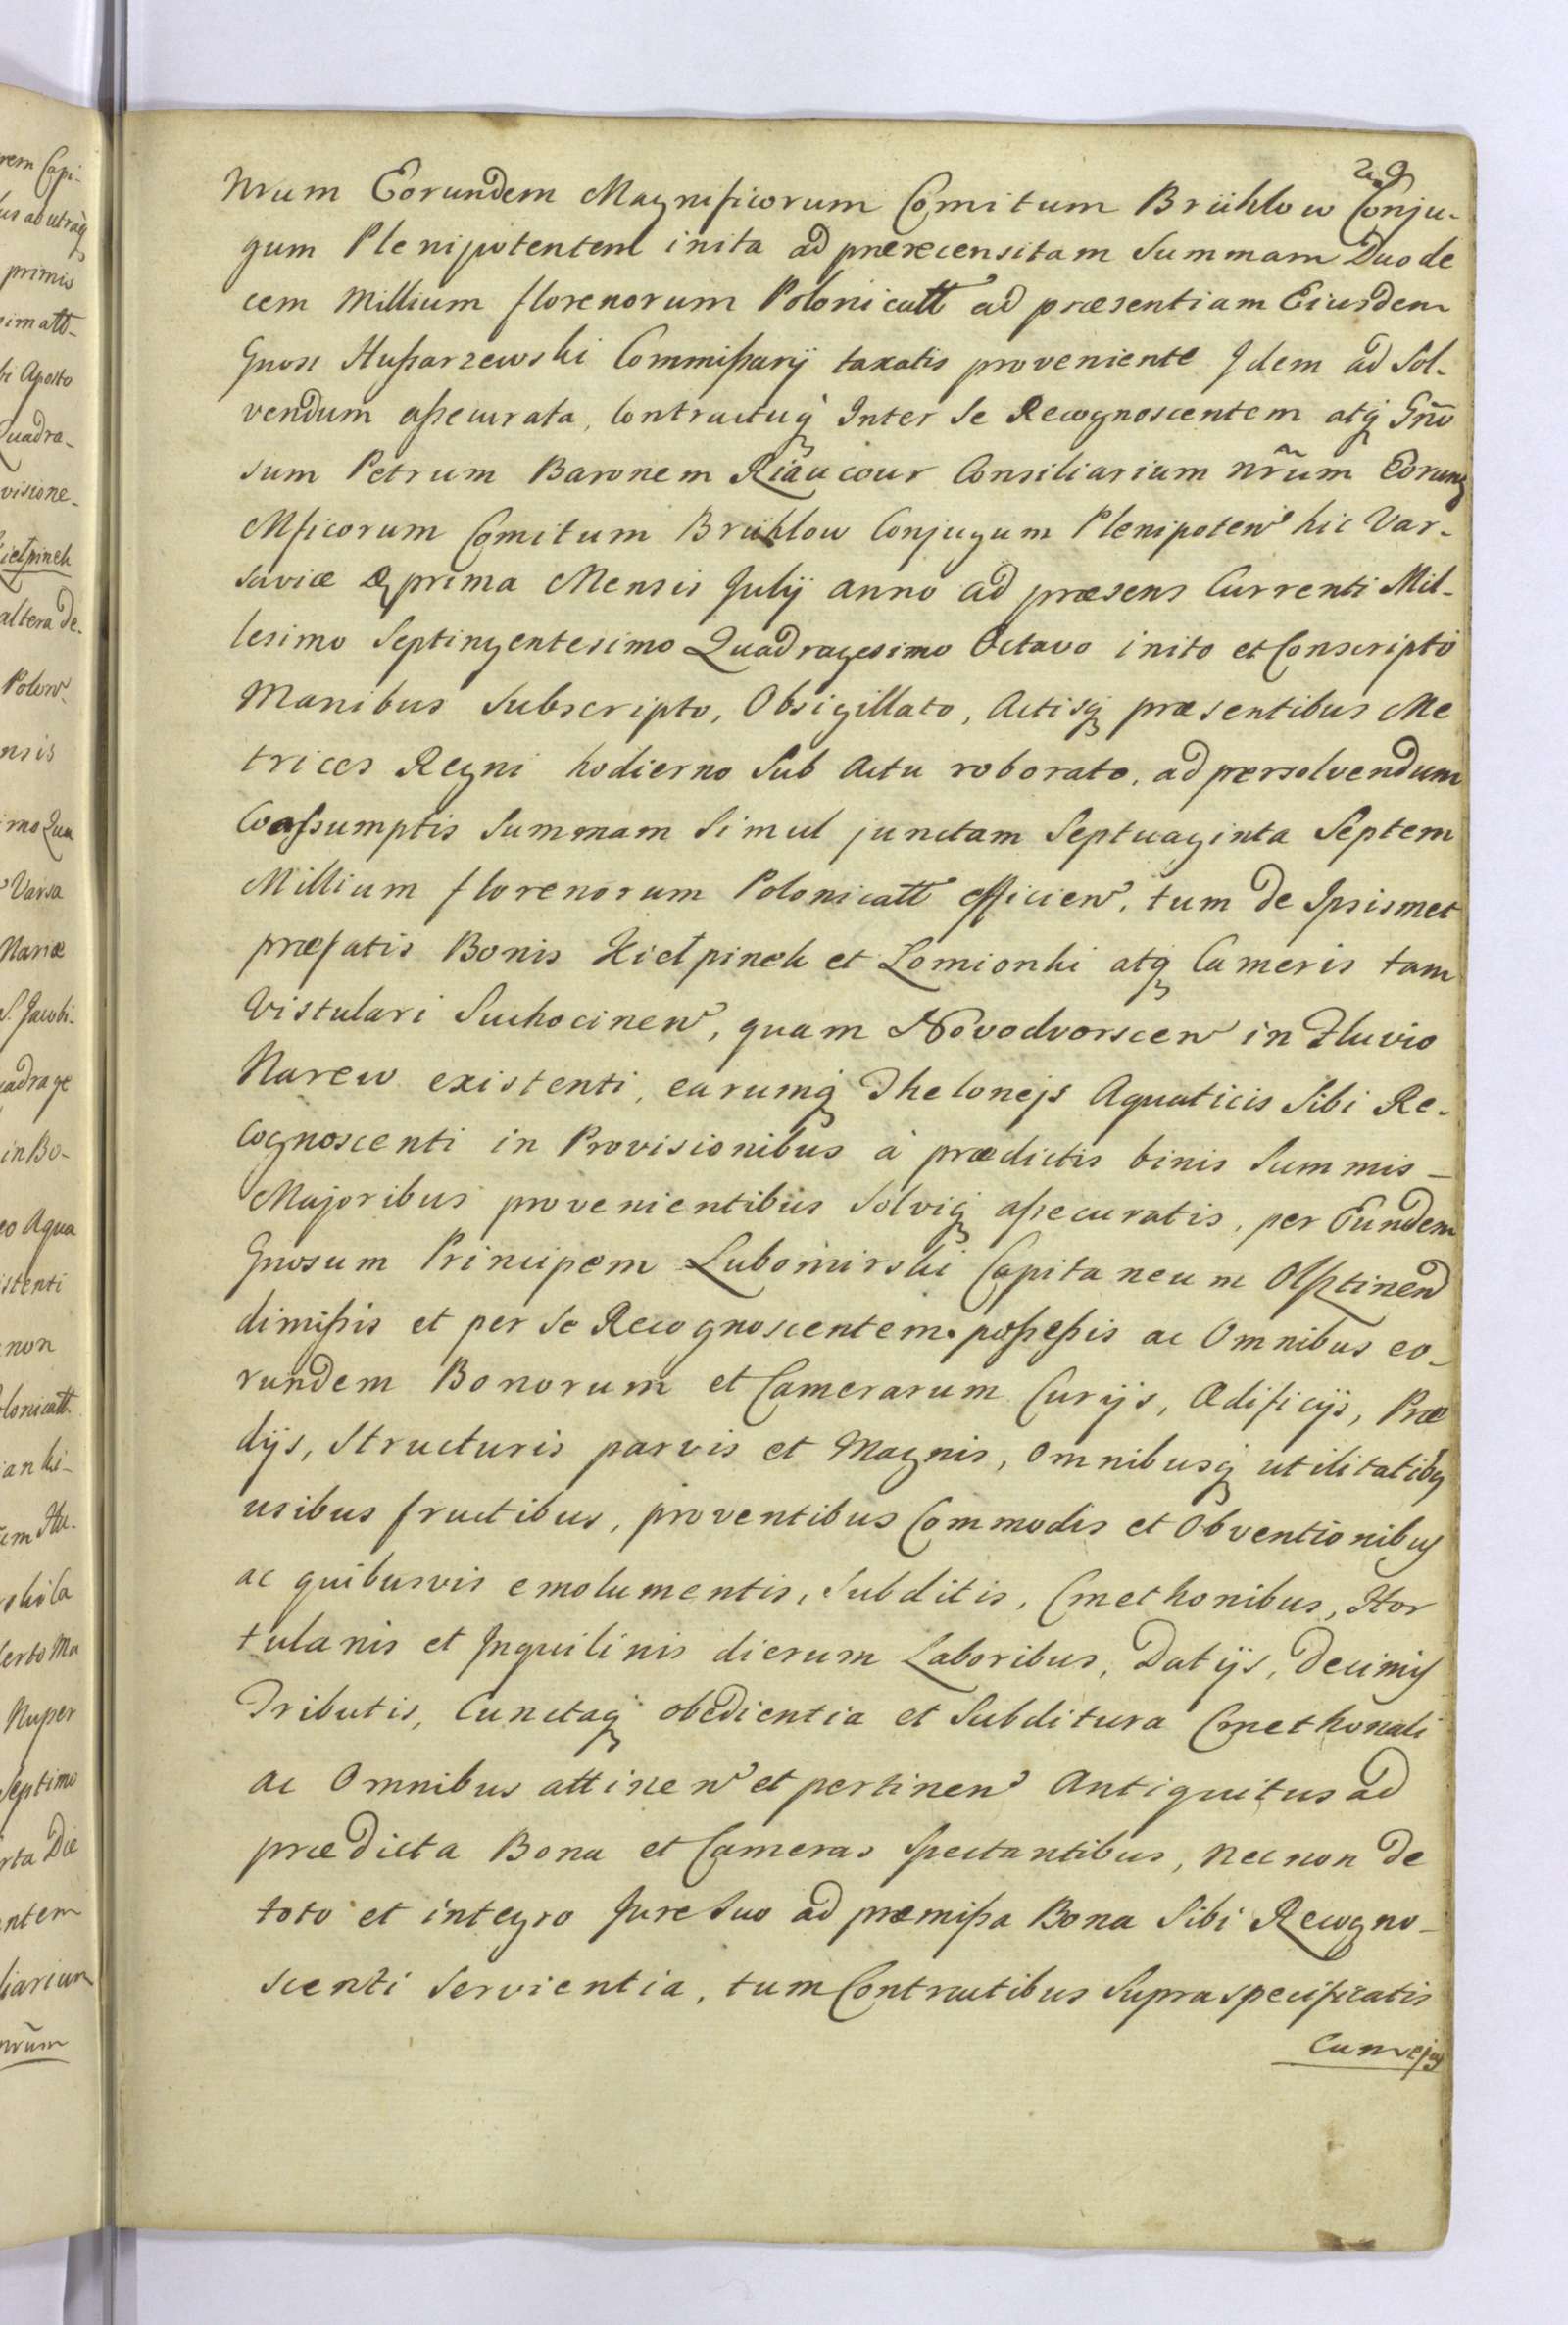 29
Nrum Eorundem Magnificorum Comitum Brühlow Conju-
gum Plenipotentem inita ad præreccensitam Summam Duode
cem Millium florenorum Polonicatt ad præsentiam Eiusdem
Gnosi Hußarzewski Commißarÿ taxatis proveniente Jdem ad Sol-
vendum aßecurata, Contractuq́ Inter Se Recognoscentem atq́ Gn̄o
sum Petrum Baronem Riaucour Consiliarium nr̃um Eorunq
Mficorum Comitum Brühlow Conjugum Plenipoten hic Var-
saviæ prima Mensis Julÿ anno ad præsens Currenti Mil-
lesimo Septingentesimo Quadragesimo Octavo inito et Conscripto
Manibus Subscripto, Obsigillato, Actisq́ præsentibus Me
trices Regni hodierno Sub Actu roborato, ad persolvendum
Coaßumptis Summam Simul junctam Septuaginta Septem
Millium florenorum Polonicatt efficien, tum de Ipsismet
præfatis Bonis Kiełpinek et Lomionki atq́ Cameris tam
Vistulari Suchocinen, quam Novodvorscen in Fluvio
Narew existenti, earumq́ Thelonejs Aquaticis Sibi Re-
cognoscenti in Provisionibus à prædictis binis Summis-
Majoribus provenientibus Solviq́ aßecuratis, per Eundem
Gnosum Principem Lubomirski Capitaneum Olsztinen
dimißis et per Se Recognoscentem poßeßis ac Omnibus eo-
rundem Bonorum et Camerarum Curÿs, Ædificÿs, Præ
dÿs, Structuris parvis et Magnis, omnibusq́ utilitatibq
usibus fructibus, proventibus Commodis et Obventionibus
ac quibusvis emolumentis, Subditis, Cmethonibus, Hor
tulanis et Inquilinis dierum Laboribus, Datÿs, Decimis
Tributis, Cunctaq́ obedientia et Subditura Cmethonali
ac Omnibus attinen et pertinen Antiquitus ad
prædicta Bona et Cameras Spectantibus, necnon de
toto et integro Jure Suo ad præmißa Bona Sibi Recogno-
scenti Servientia, tum Contractibus Supraspecificatis
Cum ejq